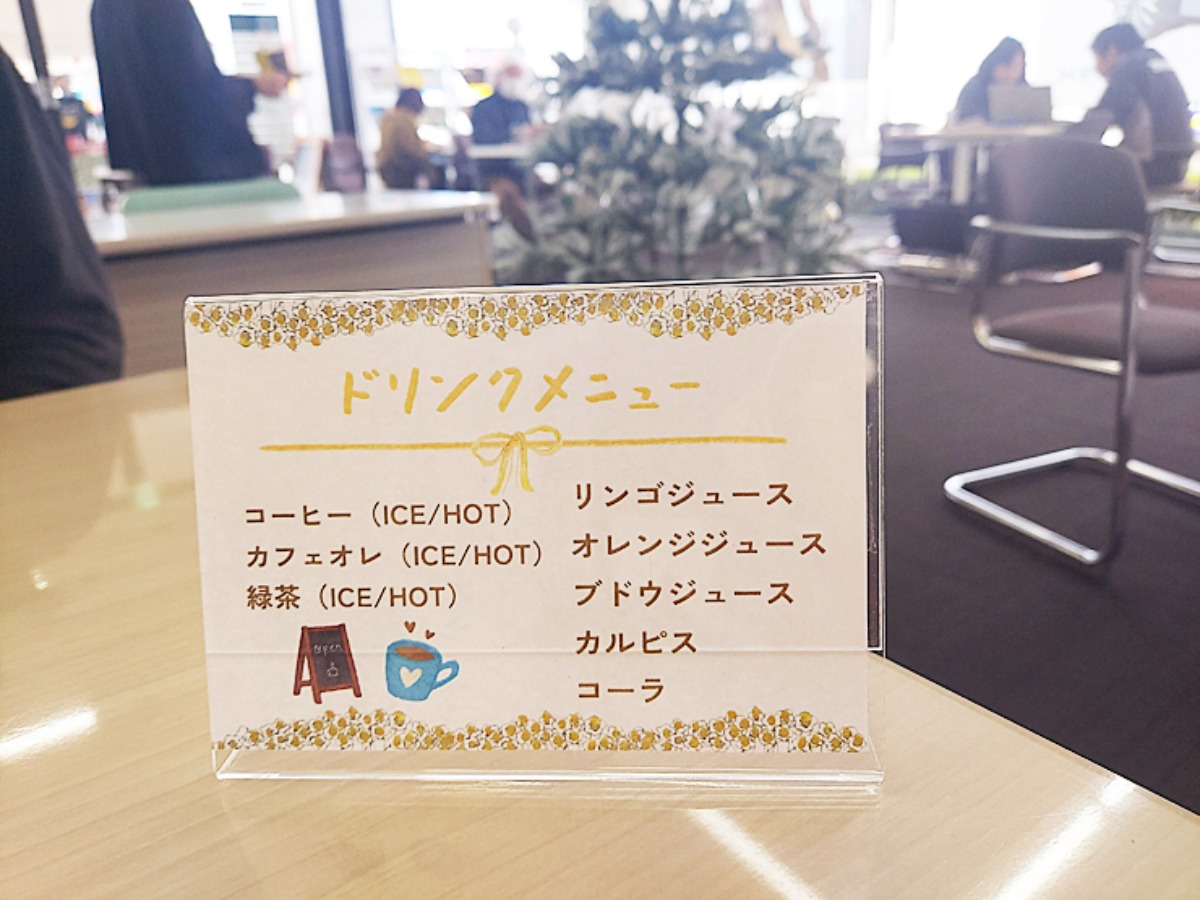 ドリンクメニュー
コーヒー（ICE/HOT）
カフェオレ（ICE/HOT）
緑茶（ICE/HOT）
リンゴジュース
オレンジジュース
ブドウジュース
カルピス
コーラ
open